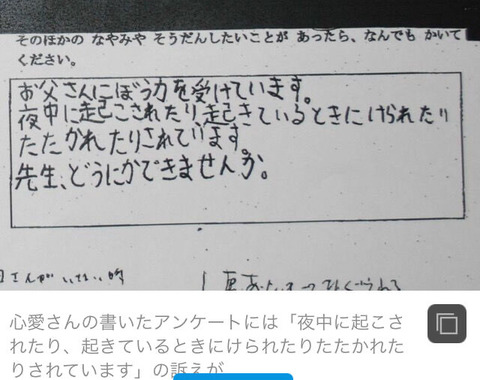 そのほかの なやみや そうだんしたいことが あったら、なんでも かいて
ください。
お父さんにぼう力を受けています。
夜中に起こされたり、起きているときにけられたり
たたかれたりされています。
先生、どうにかできませんか。
心愛さんの書いたアンケートには「夜中に起こさ
れたり、起きているときにけられたりたたかれた
りされています」の訴えが